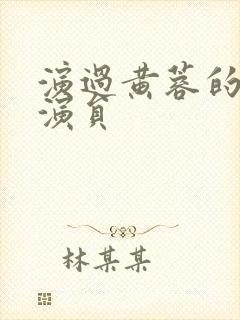 演過黄蓉的
演員
林某某